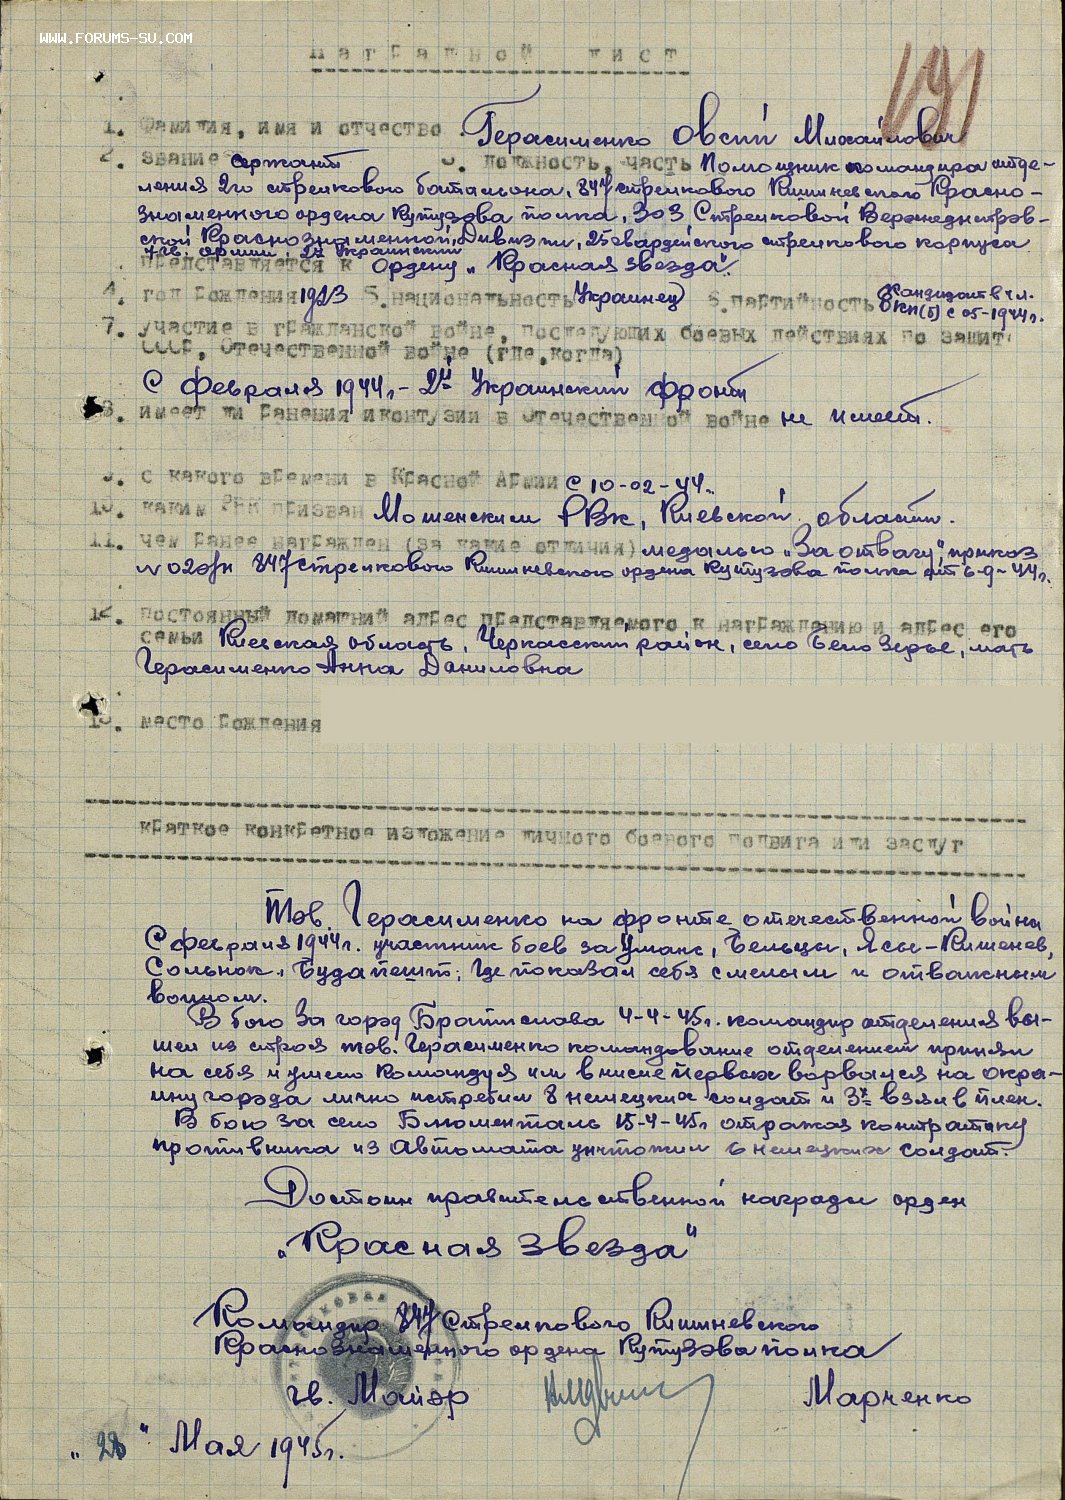 WWW.FORUMS-SU.COM
Наградной лист
191
1. Фамилия, имя и отчество Герасименко Овсий Михайлович
2. звание сержант 3. должность, часть Помощник командира отде-
ления 2го стрелкового батальона, 847 стрелкового Кишиневского Красно-
знаменного ордена Кутузова полка, 303 Стрелковой Верхнеднепров-
ской Краснознаменной Дивизии, 25 гвардейского стрелкового корпуса
7 гв. армии, 2й Украинский
представляется к Ордену „Красная звезда".
4. год рождения 1923 5. национальность Украинец 6. партийность Кандидат в чл.
ВКП(б) с 05-1944г.
7. участие в гражданской войне, последующих боевых действиях по защит
СССР, Отечественной войне (где, когда)
С февраля 1944г. - 2й Украинский фронт
8. имеет ли ранения и контузии в Отечественной войне не имеет.
9. с какого времени в Красной Армии с 10-02-44г.
10. каким РВК призван Мошенским РВК, Киевской области.
11. чем ранее награжден (за какие отличия) медалью „За отвагу", приказ
N 020/н 847 стрелкового Кишиневского ордена Кутузова полка от 6-9-44г.
12. постоянный домашний адрес представляемого к награждению и адрес его
семьи Киевская область, Черкасский район, село Бело Зерье, мать
Герасименко Анна Даниловна
13. место рождения
краткое конкретное изложение личного боевого подвига или заслуг
Тов. Герасименко на фронте отечественной войны
С февраля 1944г. участник боев за Умань, Бельцы, Яссы-Кишенев,
Сольнок, Будапешт, где показал себя смелым и отважным
воином.
В бою за город Братислава 4-4-45г. командир отделения вы-
шел из строя тов. Герасименко командование отделением принял
на себя и умело командуя им в числе первых ворвался на окра-
ину города лично истребил 8 немецких солдат и 3х взял в плен.
В бою за село Блюменталь 15-4-45г отражая контратаку
противника из автомата уничтожил 6 немецких солдат.
Достоин правительственной награды орден
„Красная звезда"
Командир 847 Стрелкового Кишиневского
Краснознаменного ордена Кутузова полка
гв. Майор Марченко
„28" Мая 1945г.